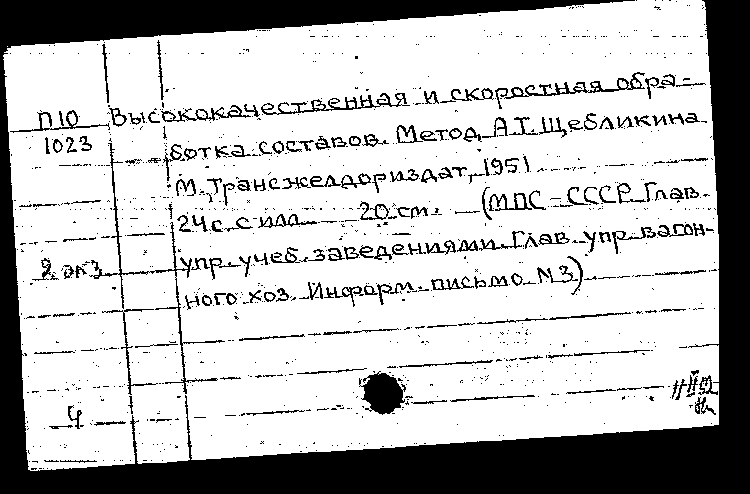 П10 Высококачественная и скоростная обра-
1023 ботка составов. Метод А.Т. Щебликина
М., Трансжелдориздат, 1951
24 с. с илл. 20 см. (МПС - СССР. Глав.
2 экз упр. учеб. заведениями. Глав. упр. вагон-
ного хоз. Информ. письмо N3).
4